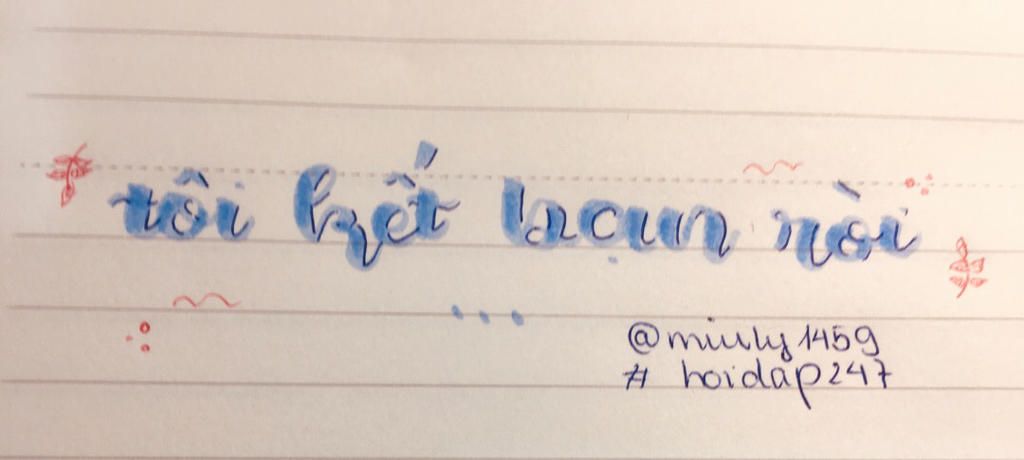 tôi kết bạn rồi
...
@miuly1459
# hoidap247